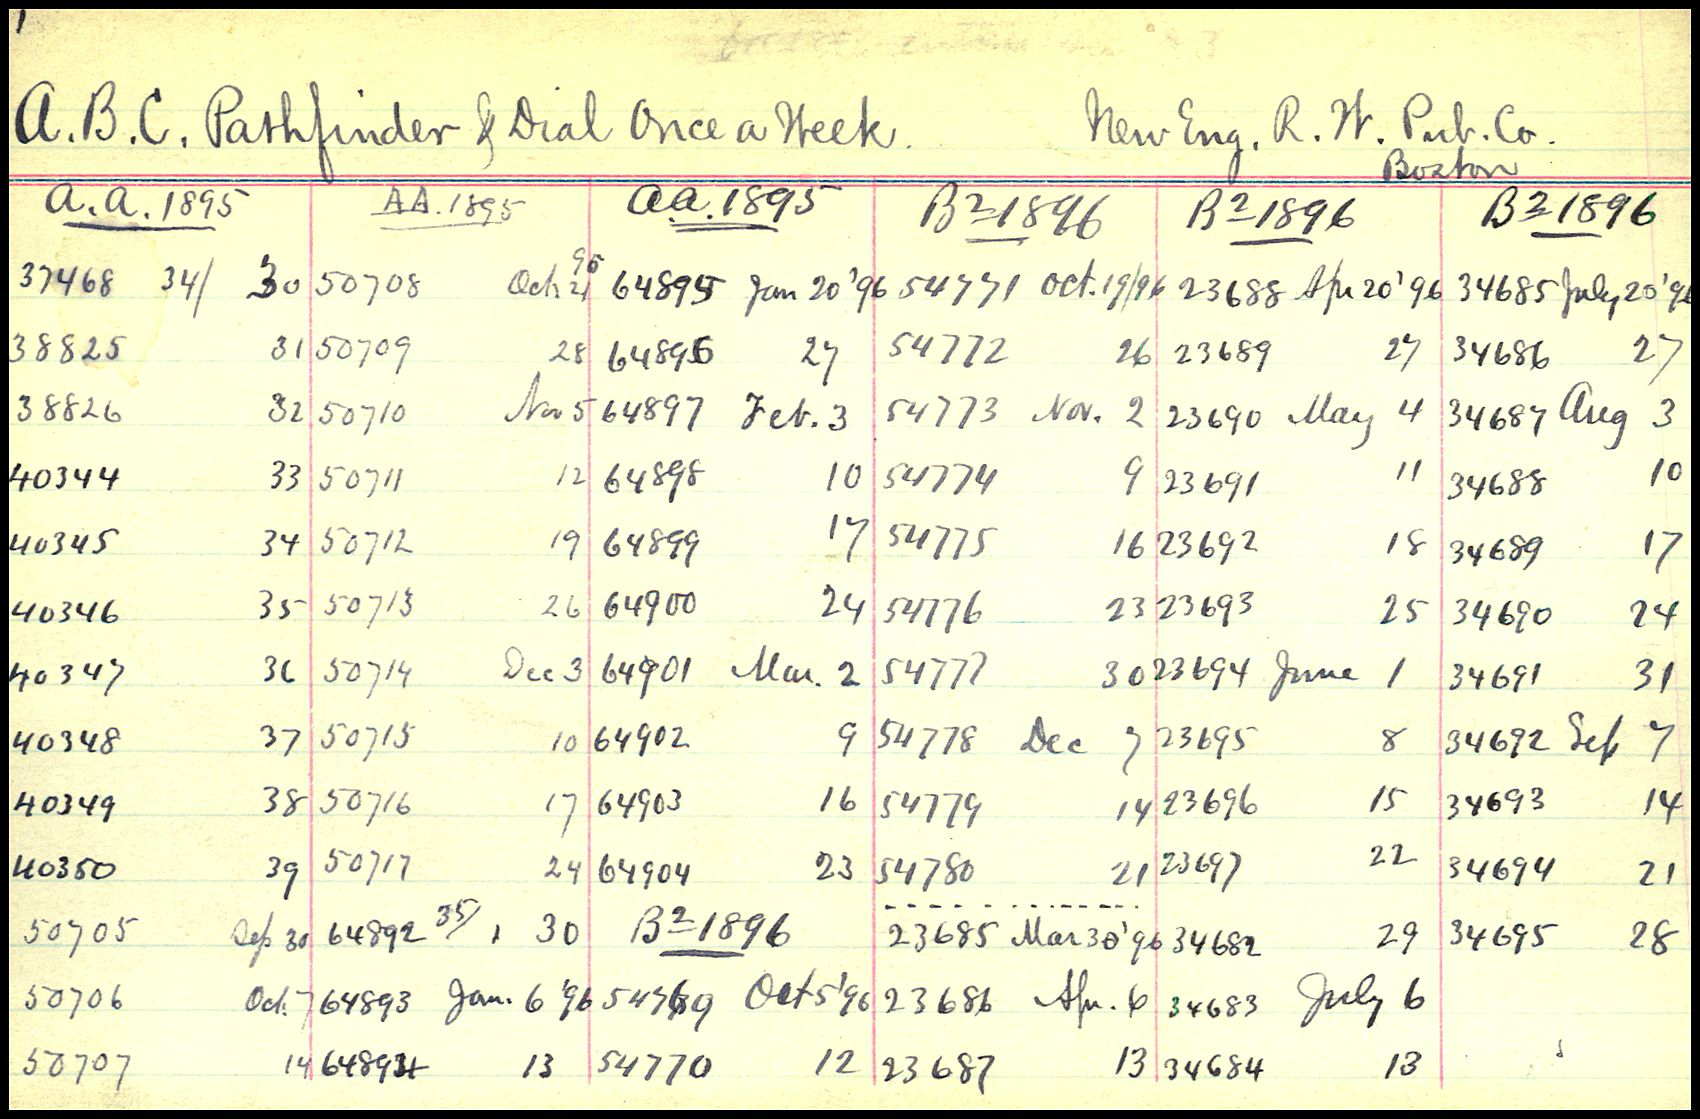 1
A.B.C. Pathfinder & Dial Once a Week. New Eng. R. W. Pub. Co.
Boston
A.A. 1895 AA. 1895 AA. 1895 B2 1896 B2 1896 B2 1896
37468 34/ 30 50708 Oct 21 95 64895 Jan 20 '96 54771 Oct. 19/96 23688 Apr 20 '96 34685 July 20 '96
38825 31 50709 28 64896 27 54772 26 23689 27 34686 27
38826 32 50710 Nov 5 64897 Feb. 3 54773 Nov. 2 23690 May 4 34687 Aug 3
40344 33 50711 12 64898 10 54774 9 23691 11 34688 10
40345 34 50712 19 64899 17 54775 16 23692 18 34689 17
40346 35 50713 26 64900 24 54776 23 23693 25 34690 24
40347 36 50714 Dec 3 64901 Mar. 2 54777 30 23694 June 1 34691 31
40348 37 50715 10 64902 9 54778 Dec 7 23695 8 34692 Sep 7
40349 38 50716 17 64903 16 54779 14 23696 15 34693 14
40350 39 50717 24 64904 23 54780 21 23697 22 34694 21
50705 Sep 30 64892 35/ 1 30 B2 1896 23685 Mar 30 '96 34682 29 34695 28
50706 Oct. 7 64893 Jan. 6 '96 54769 Oct 5 '96 23686 Apr. 6 34683 July 6
50707 14 64894 13 54770 12 23687 13 34684 13